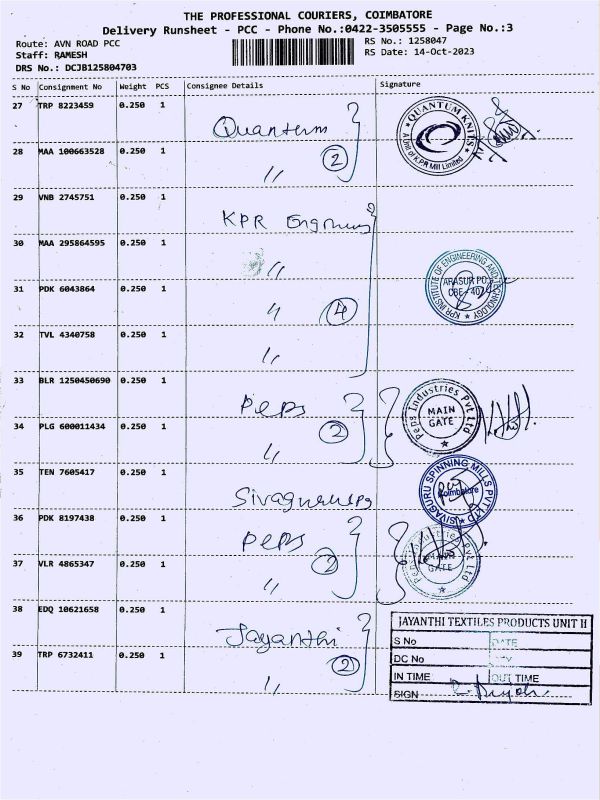 THE PROFESSIONAL COURIERS, COIMBATORE
Delivery Runsheet - PCC - Phone No.:0422-3505555 - Page No.:3
Route: AVN ROAD PCC RS No.: 1258047
Staff: RAMESH RS Date: 14-Oct-2023
DRS No.: DCJB125804703
S No Consignment No Weight PCS Consignee Details Signature
27 TRP 8223459 0.250 1 Quantum
QUANTUM KNITS A Unit of K.P.R Mill Limited
28 MAA 100663528 0.250 1 〃 2
29 VNB 2745751 0.250 1 KPR
30 MAA 295864595 0.250 1 〃
KPR INSTITUTE OF ENGINEERING AND TECHNOLOGY ARASUR PO. CBE - 407
31 PDK 6043864 0.250 1 〃 4
32 TVL 4340758 0.250 1 〃
33 BLR 1250450690 0.250 1 Peps
Peps Industries Pvt Ltd MAIN GATE
34 PLG 600011434 0.250 1 〃 2
35 TEN 7605417 0.250 1
SIVAGURU SPINNING MILLS PVT LTD Coimbatore
36 PDK 8197438 0.250 1 Peps
Peps Industries Pvt Ltd MAIN GATE
37 VLR 4865347 0.250 1 〃 2
38 EDQ 10621658 0.250 1 Jayanthi
39 TRP 6732411 0.250 1 〃 2
JAYANTHI TEXTILES PRODUCTS UNIT II
S No DATE
DC No
IN TIME OUT TIME
SIGN